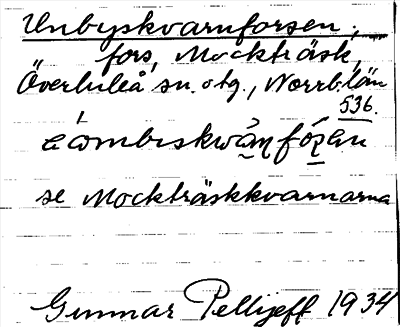 Unbyskvarnforsen,
fors, Mockträsk,
Överluleå sn. o tg., Norrb. län
536.
se Mockträskkvarnarna
Gunnar Pellijeff 1934